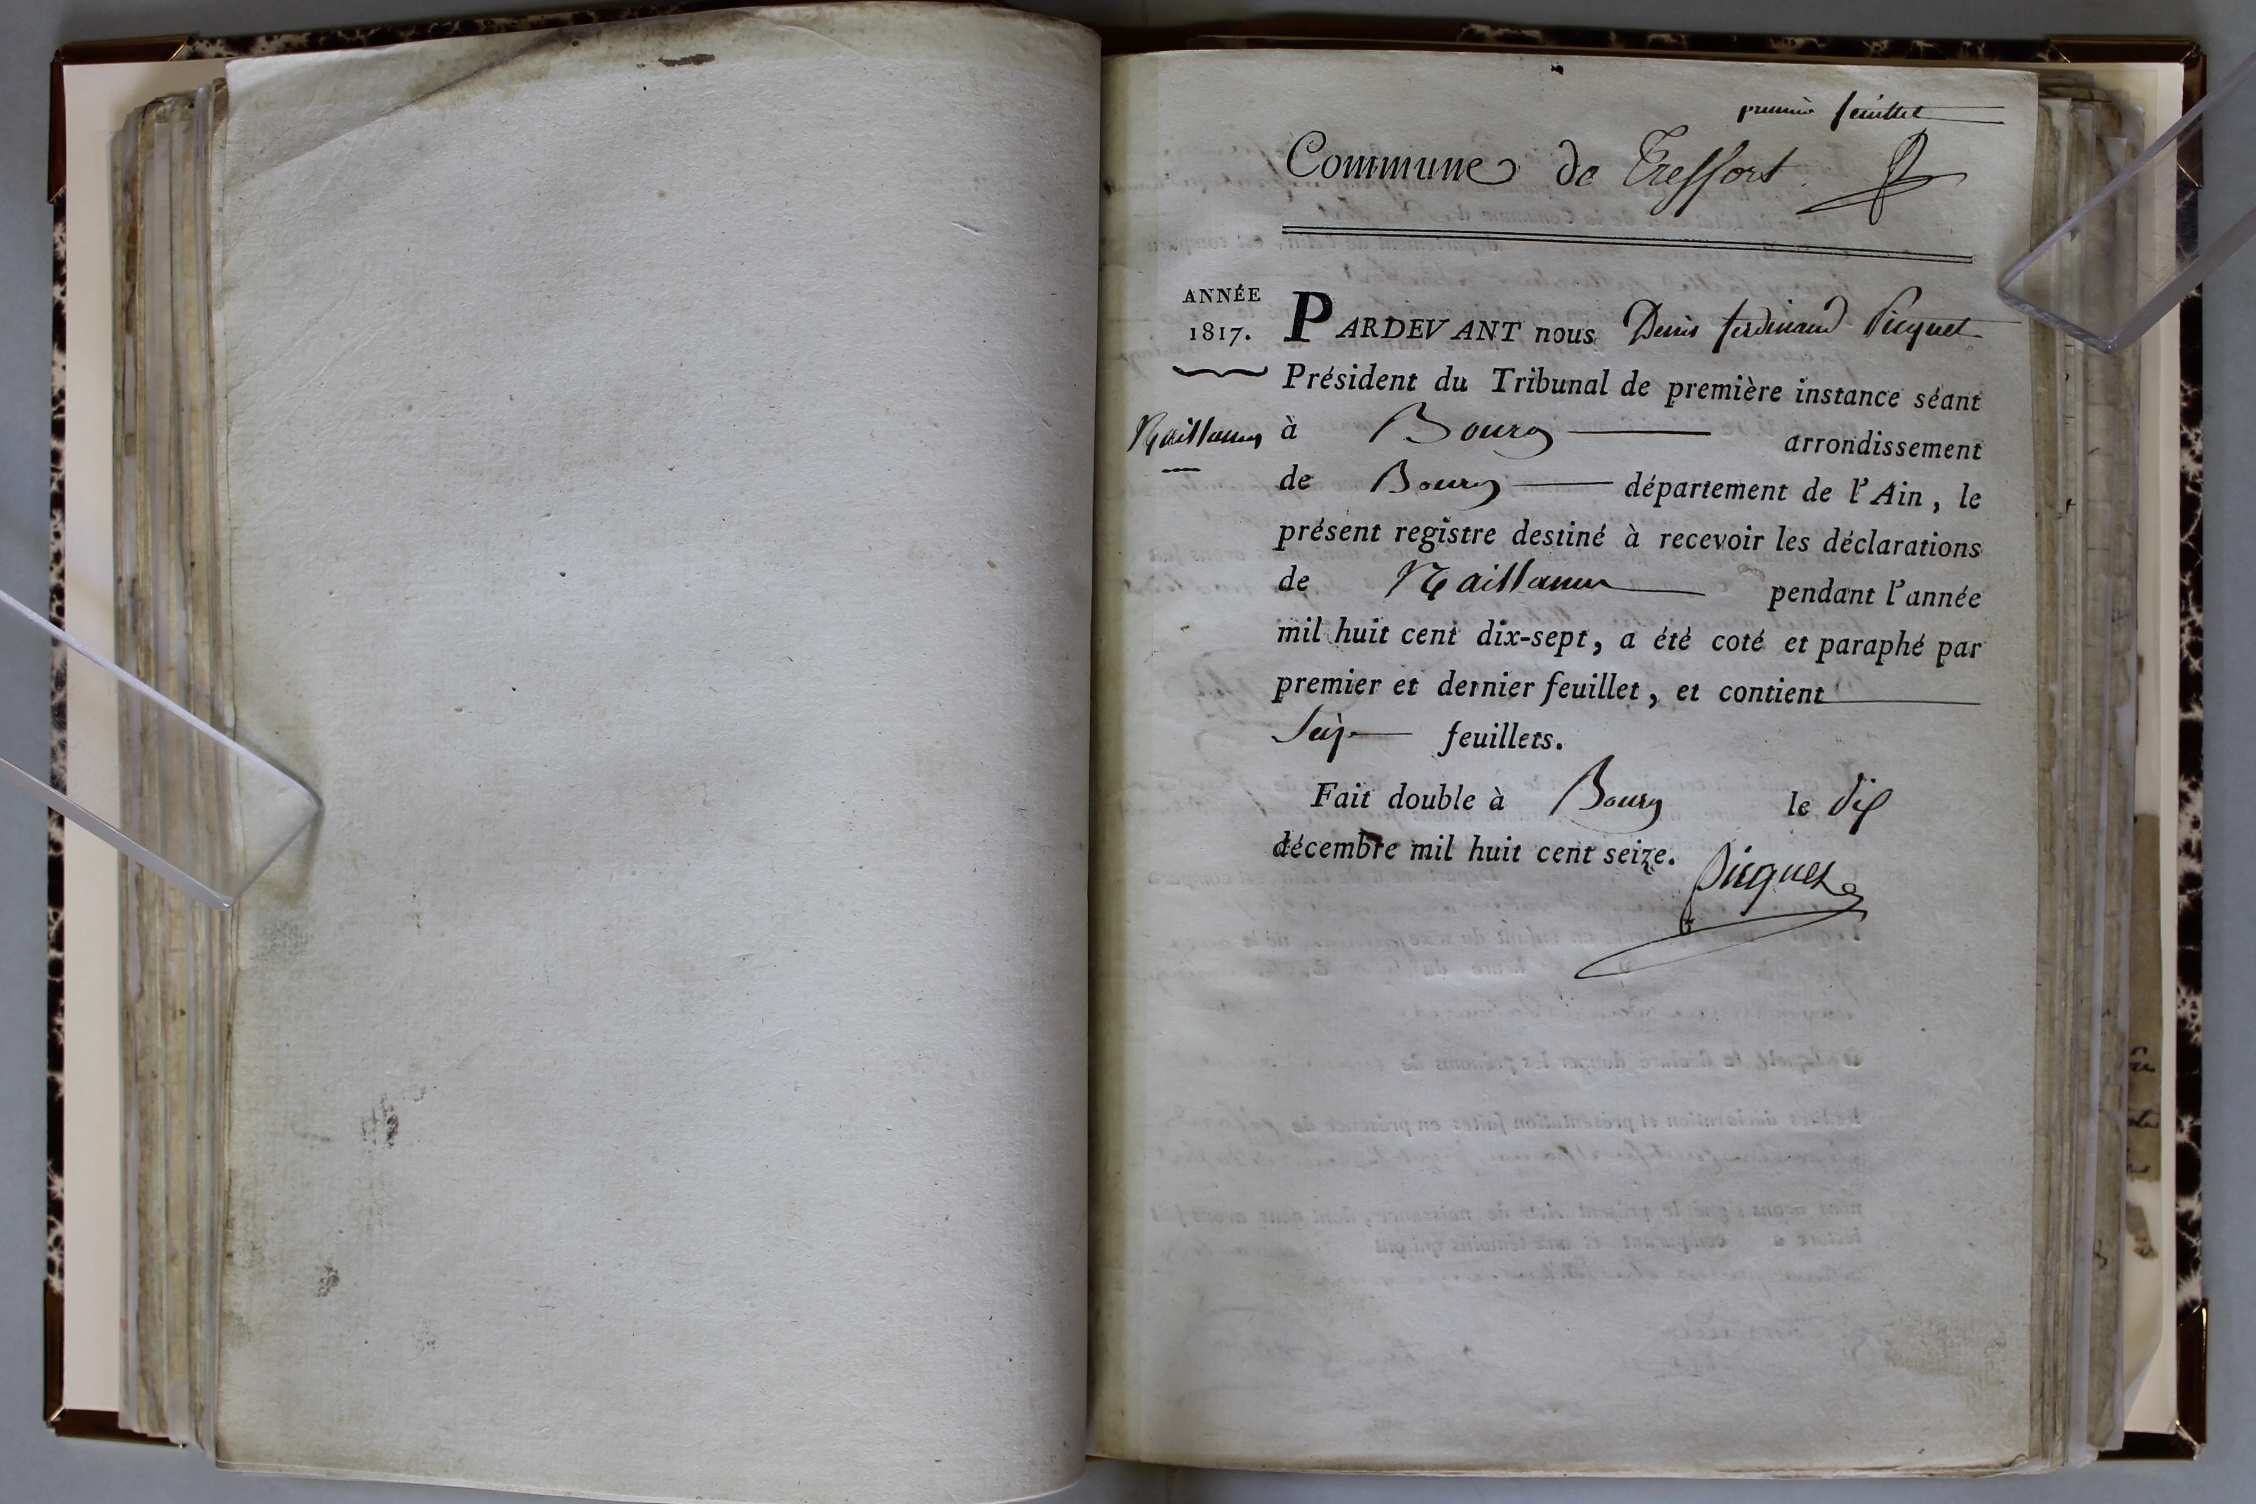 premier feuillet
Commune de Treffort
ANNÉE
1817.
Naissances
PARDEVANT nous Denis ferdinand Picquet
Président du Tribunal de première instance séant
à Bourg arrondissement
de Bourg département de l'Ain, le
présent registre destiné à recevoir les déclarations
de Naissances pendant l'année
mil huit cent dix-sept, a été coté et paraphé par
premier et dernier feuillet, et contient
Seize feuillets.
Fait double à Bourg le dix
décembre mil huit cent seize.
Picquet